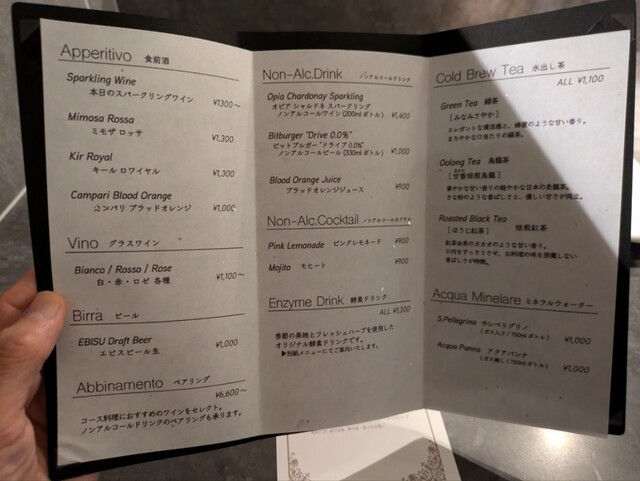 Apperitivo 食前酒
Sparkling Wine
本日のスパークリングワイン ¥1300～
Mimosa Rossa
ミモザ ロッサ ¥1,300
Kir Royal
キール ロワイヤル ¥1,300
Campari Blood Orange
カンパリ ブラッドオレンジ ¥1,000
Vino グラスワイン
Bianco / Rosso / Rose
白・赤・ロゼ 各種 ¥1,100～
Birra ビール
EBISU Draft Beer
エビスビール生 ¥1,000
Abbinamento ペアリング
¥6,600～
コース料理におすすめのワインをセレクト。
ノンアルコールドリンクのペアリングも承ります。
Non-Alc.Drink ノンアルコールドリンク
Opia Chardonay Sparkling
オピア シャルドネ スパークリング
ノンアルコールワイン (200mlボトル) ¥1,400
Bitburger "Drive 0.0%"
ビットブルガー "ドライブ 0.0%"
ノンアルコールビール (330mlボトル) ¥1,000
Blood Orange Juice
ブラッドオレンジジュース ¥900
Non-Alc.Cocktail ノンアルコールカクテル
Pink Lemonade ピンクレモネード ¥900
Mojito モヒート ¥900
Enzyme Drink 酵素ドリンク
ALL ¥1,300
季節の果物とフレッシュハーブを使用した
オリジナル酵素ドリンクです。
▶別紙メニューにてご案内いたします。
Cold Brew Tea 水出し茶
ALL ¥1,100
Green Tea 緑茶
[みなみさやか]
エレガントな清涼感と、蜂蜜のような甘い香り。
まろやかな口当たりの緑茶。
Oolong Tea 烏龍茶
[甘香焙煎烏龍]
華やかな甘い香りの軽やかな日本の烏龍茶。
きな粉のような香ばしさと、優しい甘さが両立。
Roasted Black Tea 焙煎紅茶
[ほうじ紅茶]
紅茶由来のカカオのような甘い香り。
口内をすっきりさせ、お料理の味を邪魔しない
香ばしさが特徴。
Acqua Minelare ミネラルウォーター
S.Pellegrino サンペリグリノ
(ガス入り / 750mlボトル) ¥1,000
Acqua Panna アクアパンナ
(ガス無し / 750mlボトル) ¥1,000